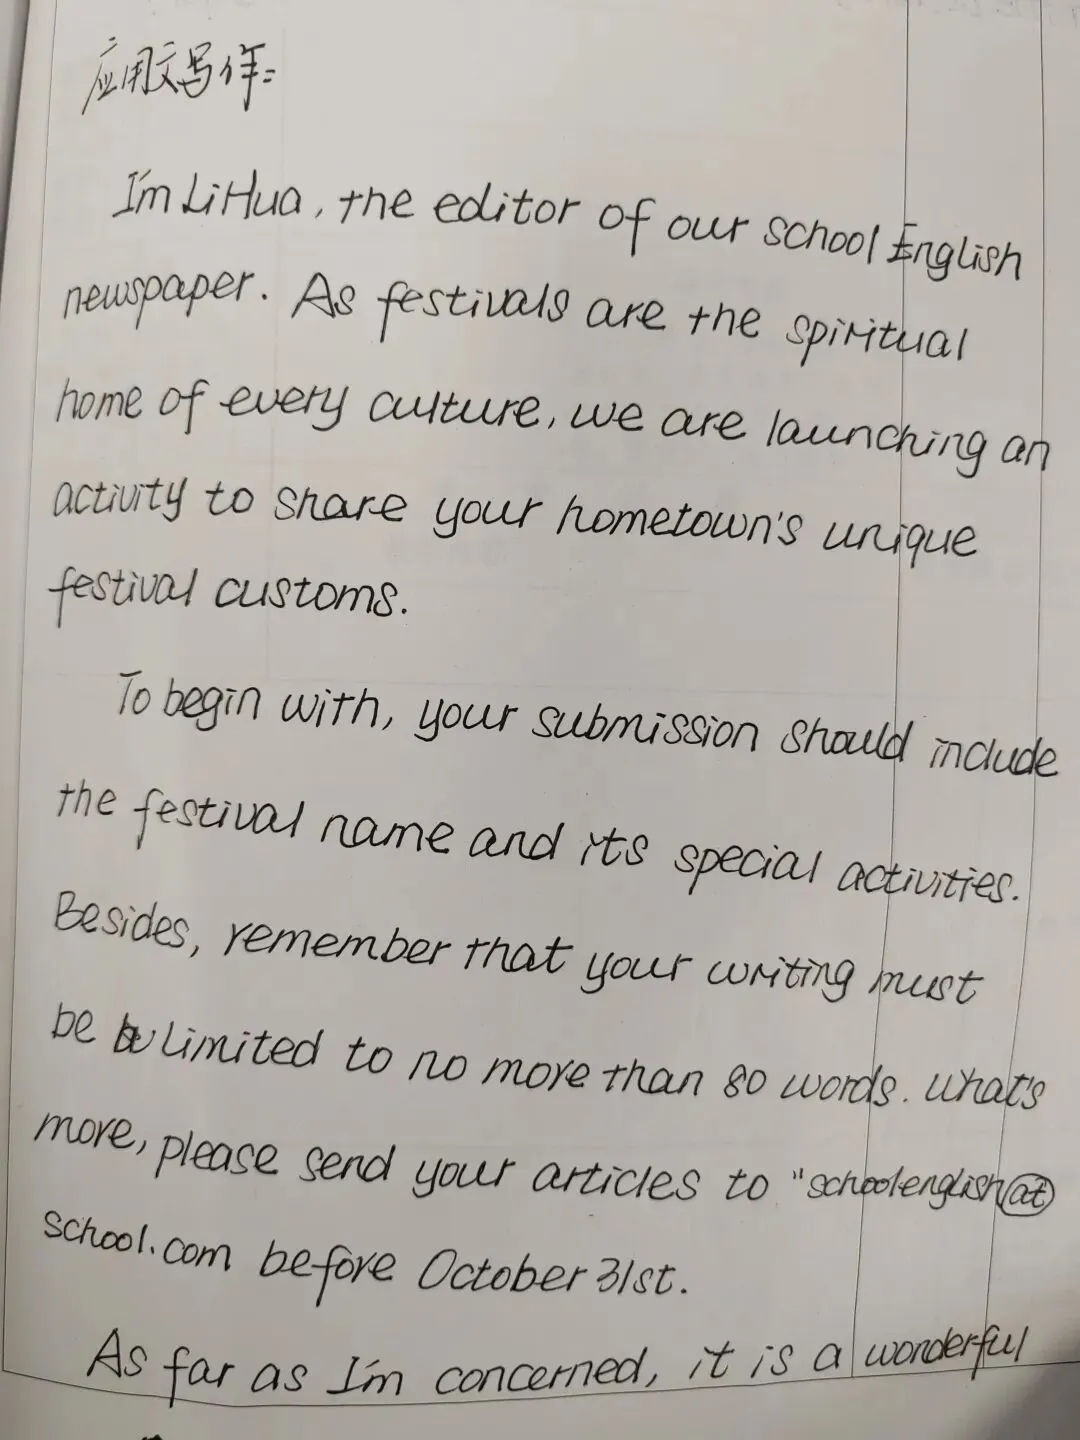 应用文写作:
I'm Li Hua, the editor of our school English
newspaper. As festivals are the spiritual
home of every culture, we are launching an
activity to share your hometown's unique
festival customs.
To begin with, your submission should include
the festival name and its special activities.
Besides, remember that your writing must
be limited to no more than 80 words. What's
more, please send your articles to "schoolenglish at
school.com before October 31st.
As far as I'm concerned, it is a wonderful